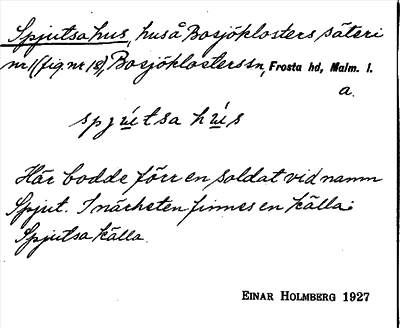 Spjutsa hus, hus å Bosjöklosters säteri
nr 1 (fig. nr 18), Bosjöklosters sn, Frosta hd, Malm. l.
a.
spjutsa hús
Här bodde förr en soldat vid namn
Spjut. I närheten finnes en källa:
Spjutsa källa.
EINAR HOLMBERG 1927